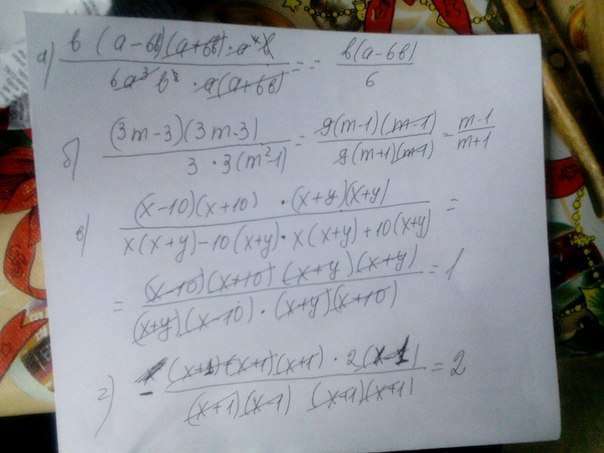 а) (b (a-6b)(a+6b) · a⁴b) / (6a³b² · a(a+6b)) = = b(a-6b) / 6
б) ((3m-3)(3m-3)) / (3 · 3(m²-1)) = (9(m-1)(m-1)) / (9(m+1)(m-1)) = (m-1) / (m+1)
в) ((x-10)(x+10) · (x+y)(x+y)) / (x(x+y)-10(x+y) · x(x+y)+10(x+y)) =
= ((x-10)(x+10) (x+y)(x+y)) / ((x+y)(x-10) · (x+y)(x+10)) = 1
г) ((x+1)(x+1) · 2(x-1)) / ((x+1)(x-1) (x+1)(x+1)) = 2